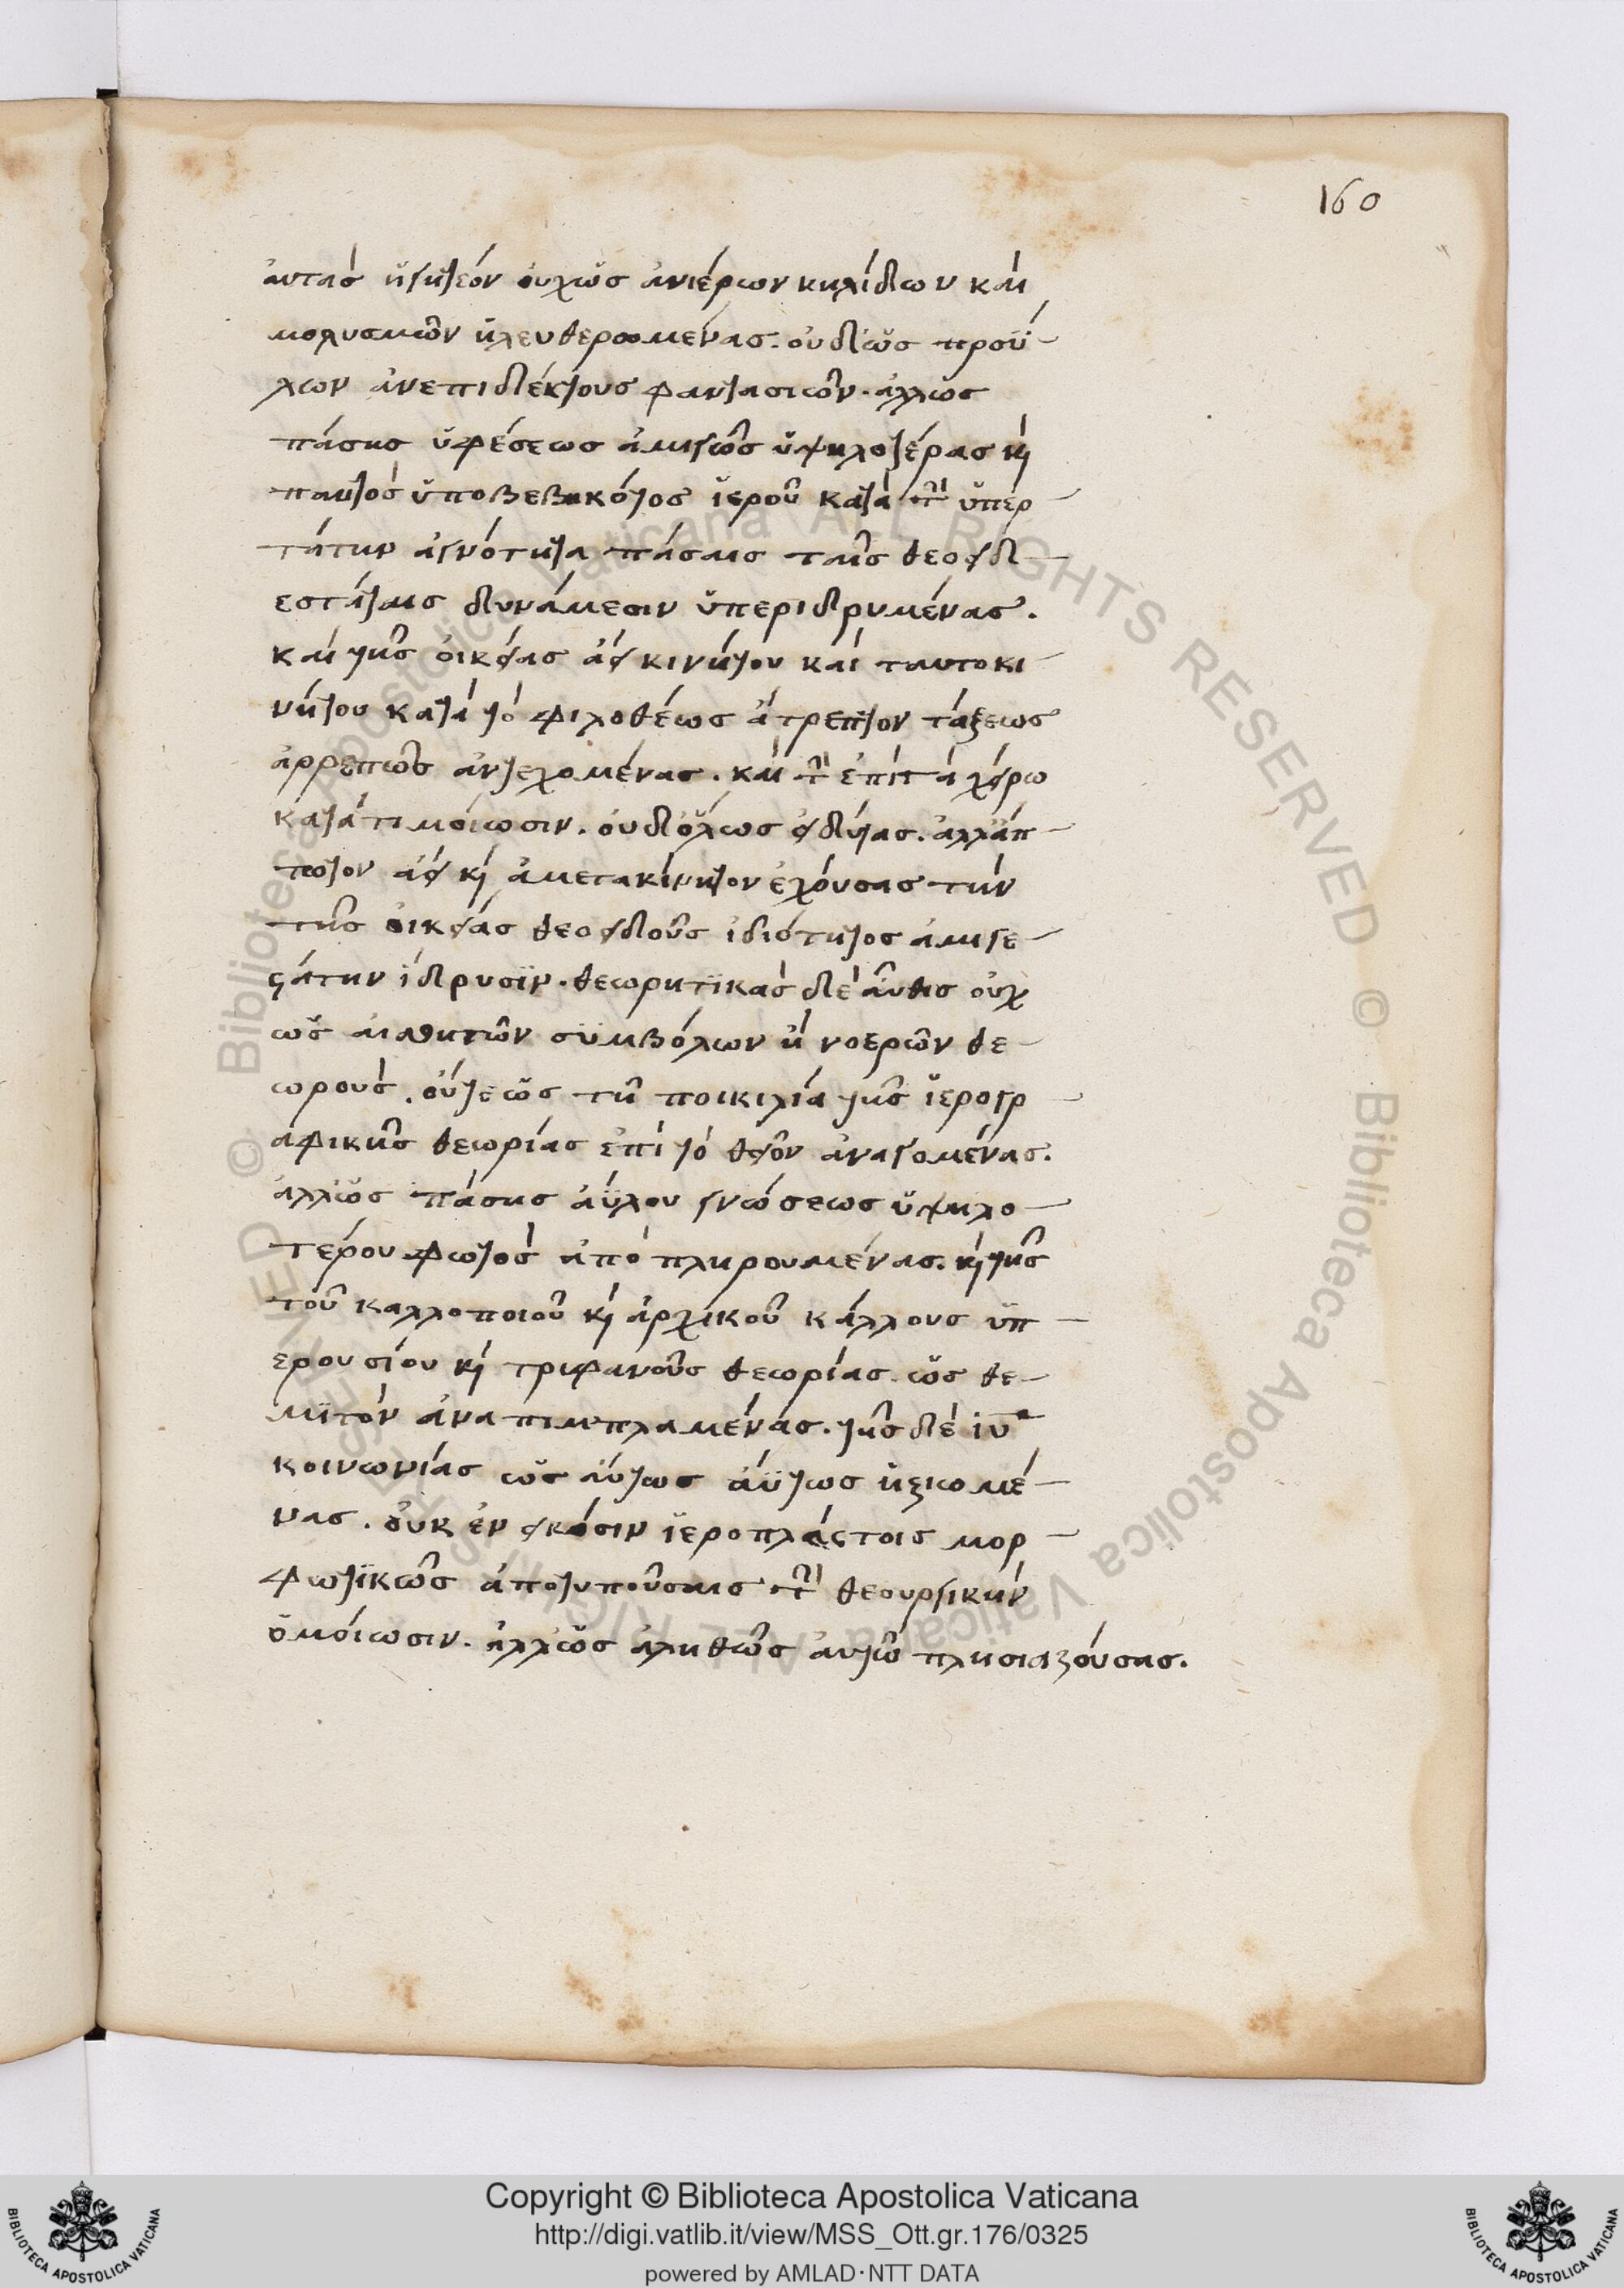 160
ἀυτὰσ ἡγητέον οὐχὡσ ἀνιέρων κηλίδων καὶ
μολυσμῶν ἠλευθερωμένασ. οὐδ' ὡσ προσύ-
λων ἀνεπιδέκτουσ φαντασιῶν. ἀλλ' ὡσ
πάσησ ὑφέσεωσ ἀμιγῶσ ὑψηλοτέρασ κὶ
παντὸσ ὑποβεβηκότοσ ἱεροῦ κατὰ τὴν ὑπερ-
τάτην ἁγνότητα πάσαισ ταῖσ θεοειδ-
εστάταισ δυνάμεσιν ὑπεριδρυμένασ.
καὶ τῆσ οἰκείασ ἀεικινήτου καὶ ταυτοκι-
νήτου κατὰ τὸ φιλοθέωσ ἄτρεπτον τάξεωσ
ἀρρεπῶσ ἀντεχομένασ. καὶ τὴν ἐπὶ τὰ χείρω
κατά τι μείωσιν. οὐδ' ὅλωσ εἰδυίασ. ἀλλ' ἄπ-
τωτον ἀεὶ κὶ ἀμετακίνητον ἐχούσασ τὴν
τῆσ οἰκείασ θεοειδοῦσ ἰδιότητοσ ἀμιγε-
ϛάτην ἵδρυσιν. θεωρητικὰσ δὲ αὖθισ οὐχ
ὡσ αἰσθητῶν συμβόλων ἢ νοερῶν θε-
ωροὺσ. οὔτε ὡσ τῇ ποικιλία τῆσ ἱερογρ-
αφικῆσ θεωρίασ ἐπὶ τὸ θεῖον ἀναγομένασ.
ἀλλ' ὡσ πάσησ ἀΰλου γνώσεωσ ὑψηλο-
τέρου φωτὸσ ἀποπληρουμένασ. κὶ τῆσ
τοῦ καλλοποιοῦ κὶ ἀρχικοῦ κάλλουσ ὑπ-
ερουσίου κὶ τριφανοῦσ θεωρίασ. ὡσ θε-
μιτὸν ἀναπιμπλαμένασ. τῆσ δὲ ἰυ
κοινωνίασ ὡσ αὔτωσ ἀΰτωσ ἠξιωμέ-
νασ. οὐκ ἐν εἰκόσιν ἱεροπλάϛτοισ μορ-
φωτικῶσ ἀποτυπούσαισ τὴν θεουργικὴν
ὁμοίωσιν. ἀλλ' ὡσ ἀληθῶσ ἀυτῶ πλησιαζούσασ.
Copyright © Biblioteca Apostolica Vaticana
http://digi.vatlib.it/view/MSS_Ott.gr.176/0325
powered by AMLAD·NTT DATA